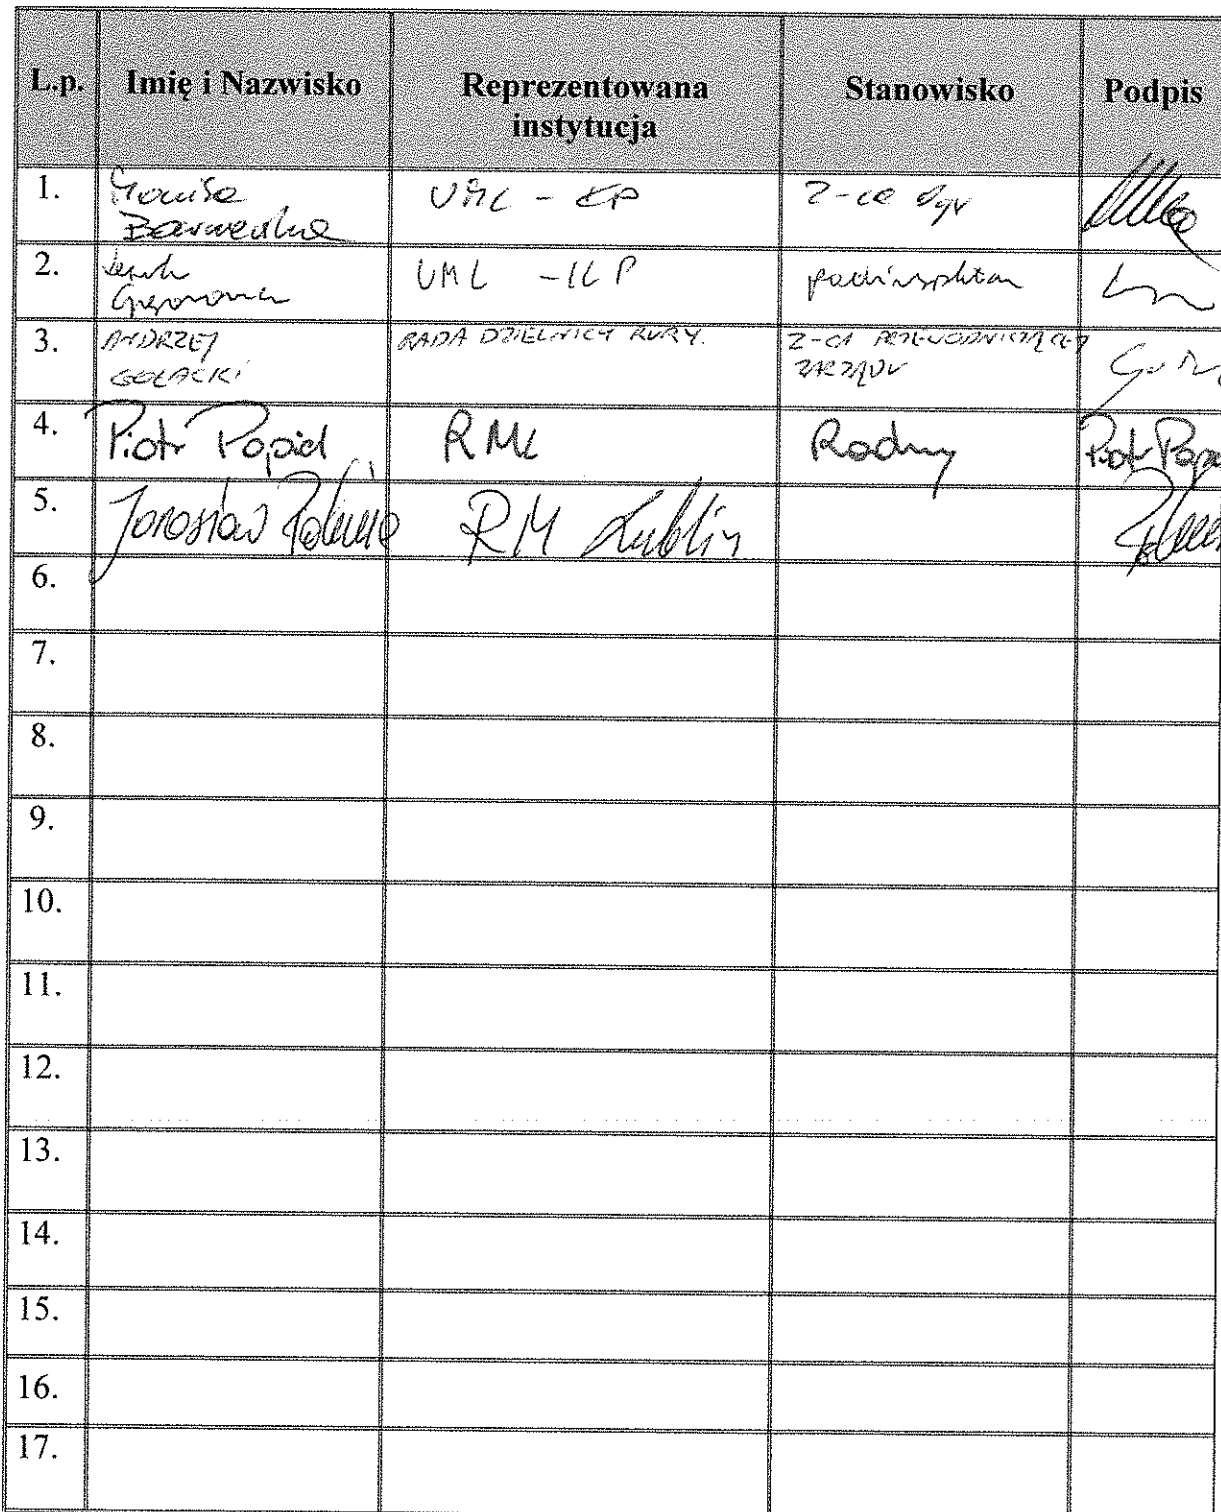 L.p. Imię i Nazwisko Reprezentowana instytucja Stanowisko Podpis
1. UML - Z-ca dyr
2. UML - podinspektor
3. ANDRZEJ GOŁACKI RADA DZIELNICY RURY. Z-CA PRZEWODNICZĄCEJ ZARZĄDU
4. Piotr Popiel RML Radny Piotr Popiel
5. Jarosław RM Lublin
6.
7.
8.
9.
10.
11.
12.
13.
14.
15.
16.
17.